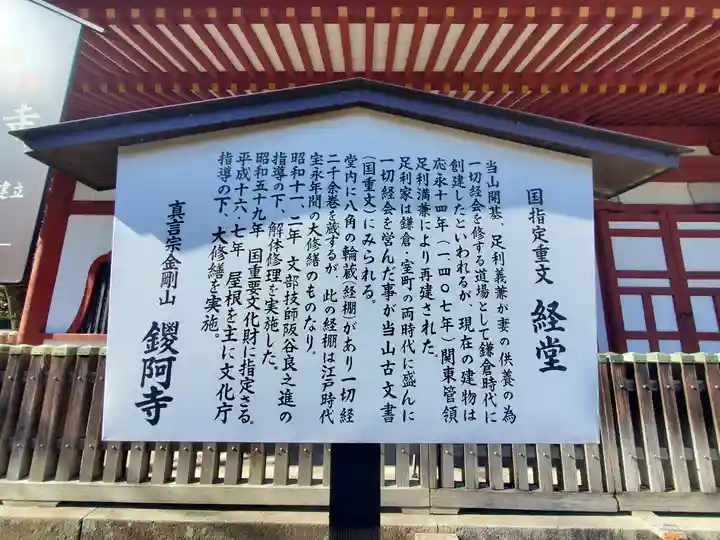 国指定重文 経堂
当山開基、足利義兼が妻の供養の為
一切経会を修する道場として鎌倉時代に
創建したといわれるが、現在の建物は
応永十四年（一四〇七年）関東管領
足利満兼により再建された。
足利家は鎌倉・室町の両時代に盛んに
一切経会を営んだ事が当山古文書
（国重文）にみられる。
堂内に八角の輪蔵（経棚）があり一切経
二千余巻を蔵するが、此の経棚は江戸時代
宝永年間の大修繕のものなり。
昭和十一、二年 文部技師阪谷良之進の
指導の下、解体修理を実施した。
昭和五十九年 国重要文化財に指定さる。
平成十六、七年 屋根を主に文化庁
指導の下、大修繕を実施。
真言宗金剛山 鑁阿寺
寺
建立